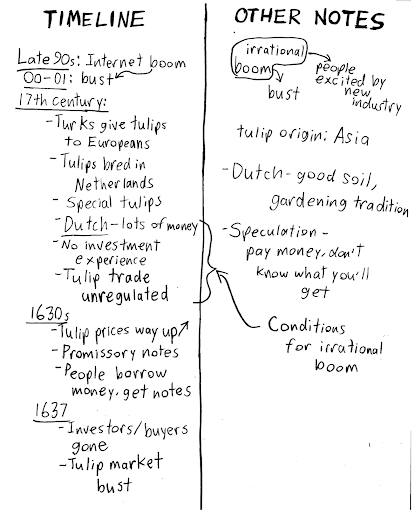 TIMELINE
Late 90s: Internet boom
00-01: bust
17th century:
-Turks give tulips
to Europeans
-Tulips bred in
Netherlands
- Special tulips
-Dutch-lots of money
-No investment
experience
-Tulip trade
unregulated
1630s
-Tulip prices way up
-Promissory notes
-People borrow
money, get notes
1637
-Investors/buyers
gone
-Tulip market
bust
OTHER NOTES
irrational
boom
bust
people
excited by
new
industry
tulip origin: Asia
-Dutch-good soil,
gardening tradition
-Speculation-
pay money, don't
know what you'll
get
Conditions
for irrational
boom